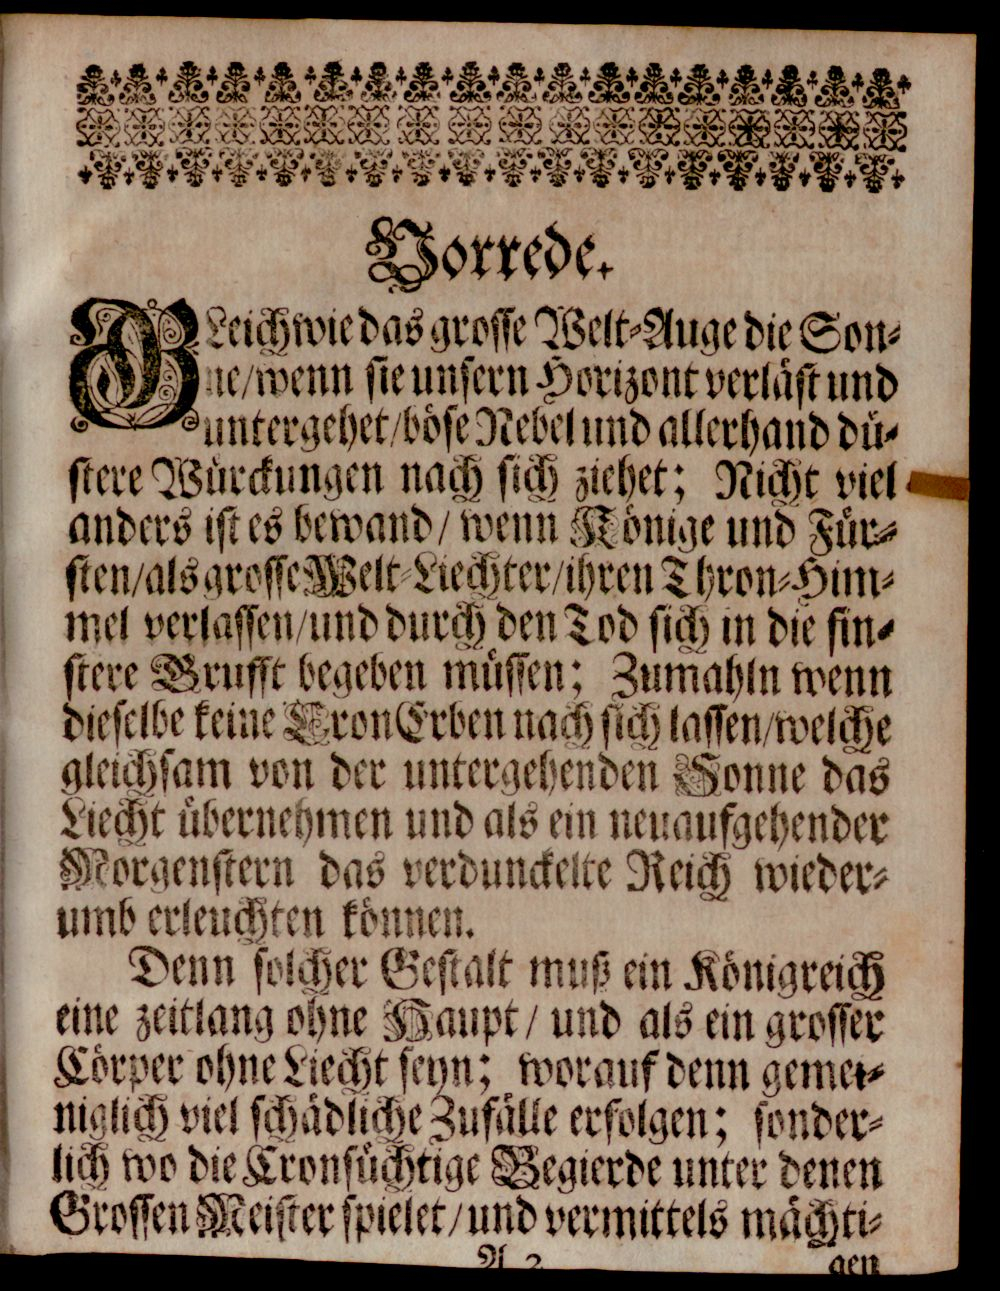 Vorrede.
GLeichwie das grosse Welt-Auge die Son-
ne/wenn sie unsern Horizont verläst und
untergehet/böse Nebel und allerhand dü-
stere Würckungen nach sich ziehet; Nicht viel
anders ist es bewand/ wenn Könige und Für-
sten/als grosse Welt-Liechter/ihren Thron-Him-
mel verlassen/und durch den Tod sich in die fin-
stere Grufft begeben müssen; Zumahln wenn
dieselbe keine CronErben nach sich lassen/welche
gleichsam von der untergehenden Sonne das
Liecht übernehmen und als ein neuaufgehender
Morgenstern das verdunckelte Reich wieder-
umb erleuchten können.
Denn solcher Gestalt muß ein Königreich
eine zeitlang ohne Haupt/ und als ein grosser
Cörper ohne Liecht seyn; worauf denn gemei-
niglich viel schädliche Zufälle erfolgen; sonder-
lich wo die Cronsüchtige Begierde unter denen
Grossen Meister spielet/und vermittels mächti-
A 2 gen